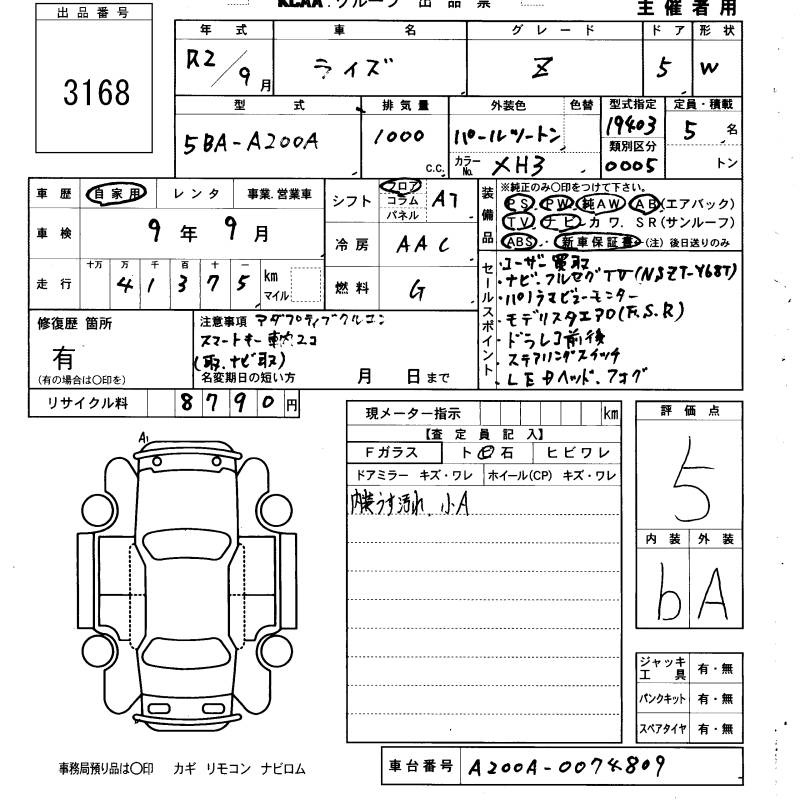 KCAA.グループ 出品票
主催者用
出品番号
3168
年式 車名 グレード ドア 形状
R2/9月 ライズ Z 5 W
型式 排気量 外装色 色替 型式指定 定員・積載
5BA-A200A 1000 c.c. パールツートン 19403 5名
カラーNo. XH3 類別区分 0005 トン
車歴 自家用 レンタ 事業.営業車
車検 9年9月
走行 十万 万 千 百 十 一
41375 km マイル
シフト フロア コラム パネル A7
冷房 AAC
燃料 G
装備品 ※純正のみ〇印をつけて下さい。
PS. PW. 純AW. AB(エアバック)
TV. ナビ. カワ. SR(サンルーフ)
ABS. 新車保証書(注)後日送りのみ
セールスポイント
・ユーザー買取
・ナビ.フルセグTV(NSZT-Y68T)
・パノラマビューモニター
・モデリスタエアロ(F.S.R)
・ドラレコ前後
・ステアリングスイッチ
・LEDヘッド.フォグ
修復歴 箇所
有
(有の場合は〇印を)
注意事項 アダプティブクルコン
スマートキー車内2コ
(取.ナビ取)
名変期日の短い方 月 日まで
リサイクル料 8790円
現メーター指示 km
【査定員記入】
Fガラス ト石 ヒビワレ
ドアミラー キズ・ワレ ホイール(CP) キズ・ワレ
内装うす汚れ、小A
評価点
5
内装 外装
b A
A1
ジャッキ工具 有・無
パンクキット 有・無
スペアタイヤ 有・無
事務局預り品は〇印 カギ リモコン ナビロム
車台番号 A200A-0074809